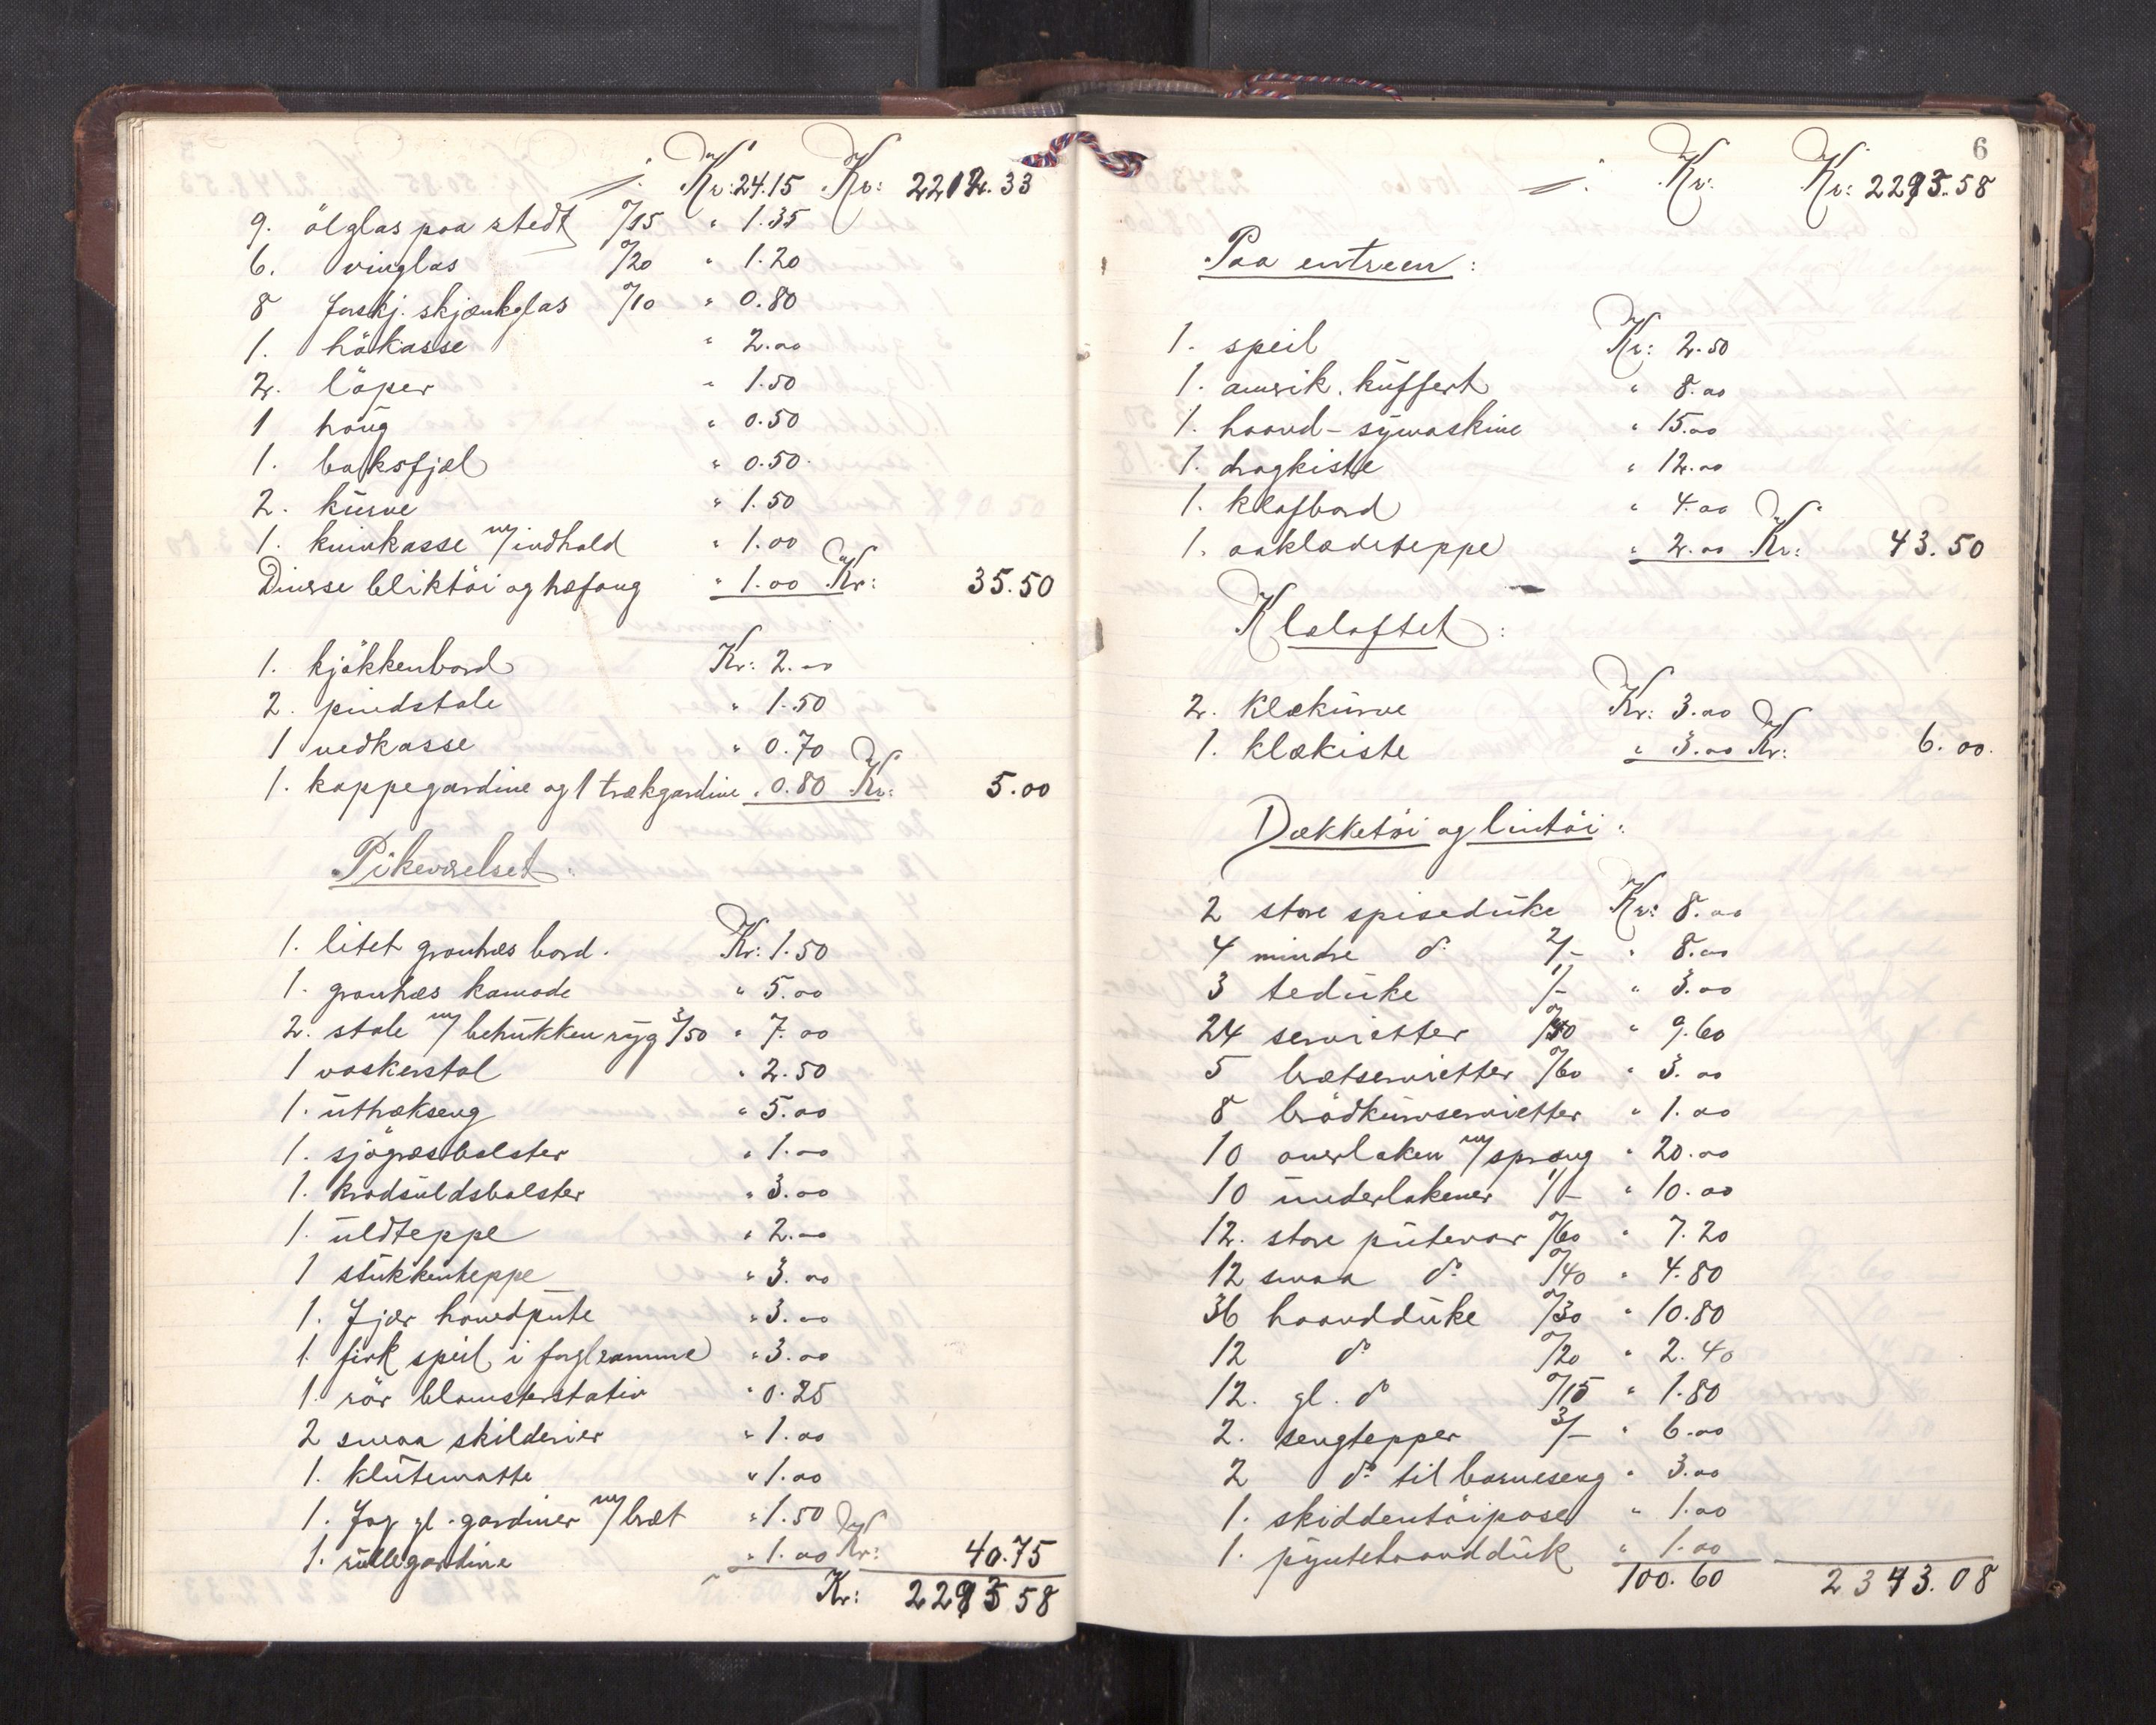 ./. Kr: 24.15 Kr: 2212.33
9. ölglas paa stedt 0/15 " 1.35
6. vinglas 0/20 " 1.20
8 forskj. skjænkglas 0/10 " 0.80
1. hökasse " 2.00
2. löper " 1.50
1 haug " 0.50
1. baksfjæl " 0.50
2. kurve " 1.50
1. knivkasse m/indhold " 1.00
Diverse bliktöi og træfang " 1.00 Kr: 35.50
1. kjökkenbord Kr: 2.00
2. pindstole " 1.50
1 vedkasse " 0.70
1. kappegardine og 1 trækgardine " 0.80 Kr: 5.00
Pikeværelset:
1. litet grantræs bord. Kr: 1.50
1. grantræs komode " 5.00
2. stole m/ betrukken ryg 3/50 " 7.00
1 vaskerstol " 2.50
1. uttrækseng " 5.00
1. sjögræsbolster " 1.00
1. kradsuldsbolster " 3.00
1. uldteppe " 2.00
1 stukkenteppe " 3.00
1. Fjær hovedpute " 3.00
1. firk speil i forgl ramme " 3.00
1. rör blomsterstativ " 0.25
2 smaa skilderier " 1.00
1. klutematte " 1.00
1. Fag gl. gardiner m/bræt " 1.50
1. rullegardine " 1.00 Kr: 40.75
Kr: 2293 58
6
./. Kr: Kr: 2293.58
Paa entreen:
1. speil Kr: 2.50
1. amrik. kuffert " 8.00
1. haand-symaskine " 15.00
1. dragkiste " 12.00
1. klafbord " 4.00
1. aaklædeteppe " 2.00 Kr: 43.50
Klæloftet:
2. klækurve Kr: 3.00
1. klækiste " 3.00 Kr: 6.00.
Dækketöi og lintöi:
2 store spiseduke Kr: 8.00
4 mindre do 2/- " 8.00
3 teduke 1/- " 3.00
24 servietter 0/40 " 9.60
5 brætservietter 0/60 " 3.00
8 brödkurvservietter " 1.00
10 overlaken m/sprang " 20.00
10 underlakener 1/- " 10.00
12. store putevar 0/60 " 7.20
12 smaa do 0/40 " 4.80
36 haandduke 0/30 " 10.80
12 do 0/20 " 2.40
12. gl. do 0/15 " 1.80
2. sengtepper 3/- " 6.00
2 do til barneseng " 3.00
1. skiddentöipose " 1.00
1. pyntehaandduk " 1.00
100.60 2343.08